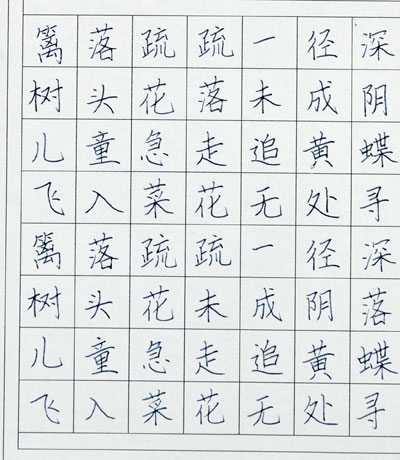 篱落疏疏一径深
树头花落未成阴
儿童急走追黄蝶
飞入菜花无处寻
篱落疏疏一径深
树头花未成阴落
儿童急走追黄蝶
飞入菜花无处寻